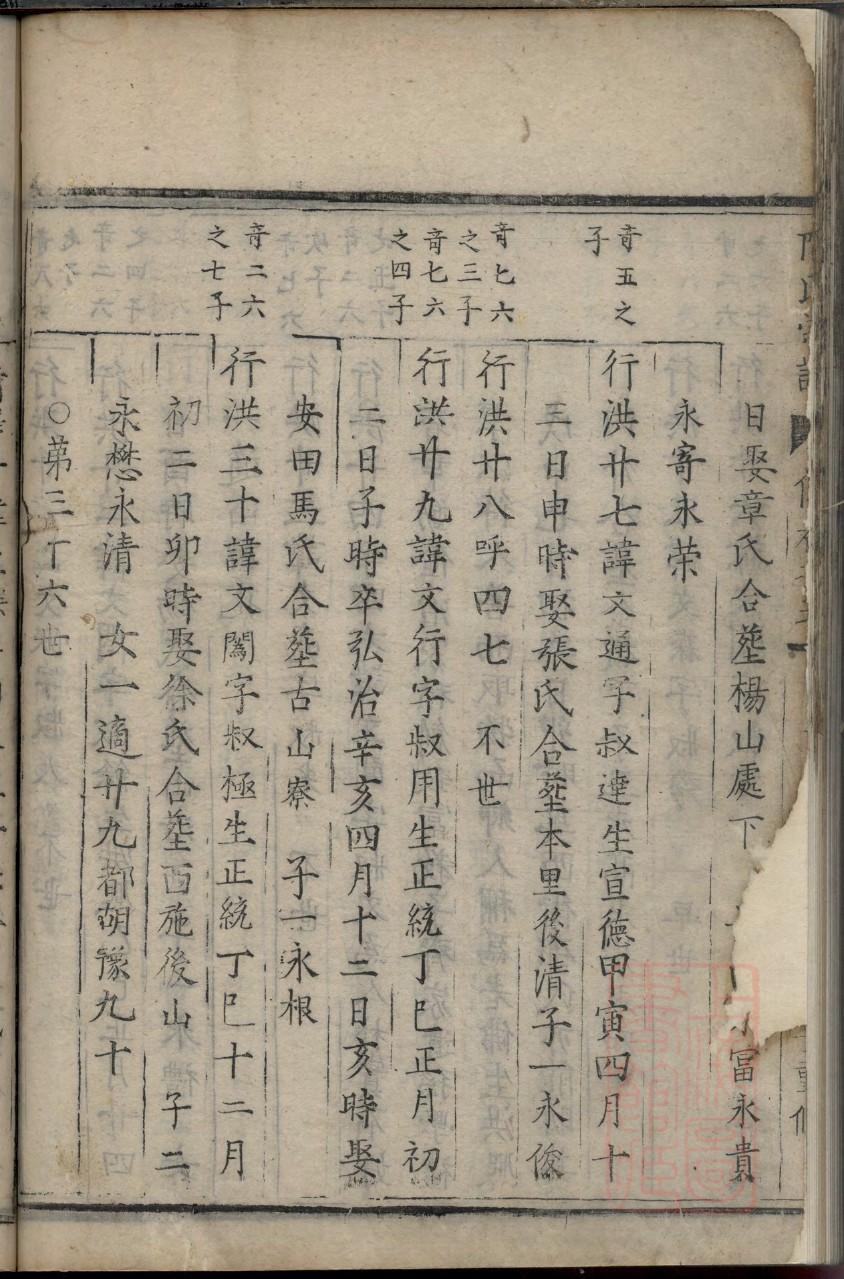 日娶章氏合塟楊山處下 富永貴
永寄永荣
竒五之
子
行洪廿七諱文通字叔達生宣德甲寅四月十
三日申時娶張氏合塟本里後清子一永俊
竒七六
之三子
行洪廿八呼四七 不世
竒七六
之四子
行洪廿九諱文行字叔用生正統丁巳正月初
二日子時卒弘治辛亥四月十二日亥時娶
安田馬氏合塟古山寮 子一永根
竒二六
之七子
行洪三十諱文闖字叔極生正統丁巳十二月
初二日卯時娶徐氏合塟西施後山 子二
永懋永清 女一適廿九都胡豫九十
○苐三十六世